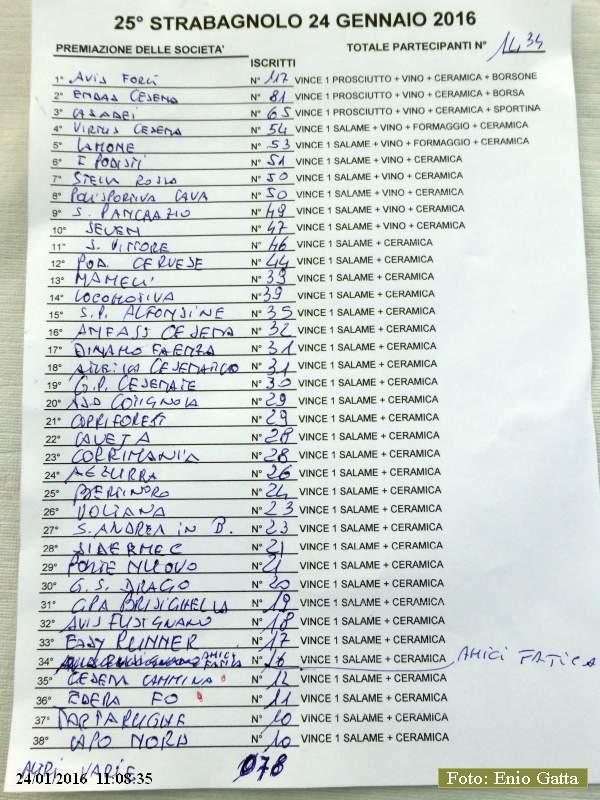 25° STRABAGNOLO 24 GENNAIO 2016
PREMIAZIONE DELLE SOCIETA' TOTALE PARTECIPANTI N° 1434
ISCRITTI
1° AVIS FORLÌ N° 117 VINCE 1 PROSCIUTTO + VINO + CERAMICA + BORSONE
2° ENDAS CESENA N° 81 VINCE 1 PROSCIUTTO + VINO + CERAMICA + BORSA
3° CASADEI N° 65 VINCE 1 PROSCIUTTO + VINO + CERAMICA + SPORTINA
4° VIRTUS CESENA N° 54 VINCE 1 SALAME + VINO + FORMAGGIO + CERAMICA
5° LAMONE N° 53 VINCE 1 SALAME + VINO + FORMAGGIO + CERAMICA
6° I PODISTI N° 51 VINCE 1 SALAME + VINO + CERAMICA
7° STELLA ROSSA N° 50 VINCE 1 SALAME + VINO + CERAMICA
8° POLISPORTIVA CAVA N° 50 VINCE 1 SALAME + VINO + CERAMICA
9° S. PANCRAZIO N° 49 VINCE 1 SALAME + VINO + CERAMICA
10° SEVEN N° 47 VINCE 1 SALAME + VINO + CERAMICA
11° S. VITTORE N° 46 VINCE 1 SALAME + CERAMICA
12° POD. CERVESE N° 44 VINCE 1 SALAME + CERAMICA
13° MAMELI N° 39 VINCE 1 SALAME + CERAMICA
14° LOCOMOTIVA N° 39 VINCE 1 SALAME + CERAMICA
15° S.P. ALFONSINE N° 35 VINCE 1 SALAME + CERAMICA
16° ANFASS CESENA N° 32 VINCE 1 SALAME + CERAMICA
17° DINAMO FAENZA N° 31 VINCE 1 SALAME + CERAMICA
18° CESENATICO N° 31 VINCE 1 SALAME + CERAMICA
19° G.P. CESENATE N° 30 VINCE 1 SALAME + CERAMICA
20° ASD COTIGNOLA N° 29 VINCE 1 SALAME + CERAMICA
21° CORRIFOREST N° 29 VINCE 1 SALAME + CERAMICA
22° CAVEJA N° 28 VINCE 1 SALAME + CERAMICA
23° CORRIMANIA N° 28 VINCE 1 SALAME + CERAMICA
24° AZZURRA N° 26 VINCE 1 SALAME + CERAMICA
25° BERTINORO N° 24 VINCE 1 SALAME + CERAMICA
26° VOLTANA N° 23 VINCE 1 SALAME + CERAMICA
27° S. ANDREA IN B. N° 23 VINCE 1 SALAME + CERAMICA
28° SIDERMEC N° 21 VINCE 1 SALAME + CERAMICA
29° PONTE NUOVO N° 21 VINCE 1 SALAME + CERAMICA
30° G.S. DRAGO N° 20 VINCE 1 SALAME + CERAMICA
31° GPA BRISIGHELLA N° 19 VINCE 1 SALAME + CERAMICA
32° AVIS FUSIGNANO N° 18 VINCE 1 SALAME + CERAMICA
33° EASY RUNNER N° 17 VINCE 1 SALAME + CERAMICA
34° AMICI FATICA N° 16 VINCE 1 SALAME + CERAMICA AMICI FATICA
35° CESENA CAMMINA N° 12 VINCE 1 SALAME + CERAMICA
36° EDERA FO N° 11 VINCE 1 SALAME + CERAMICA
37° TARTARUGHE N° 10 VINCE 1 SALAME + CERAMICA
38° CAPO NORD N° 10 VINCE 1 SALAME + CERAMICA
ALTRI VARIE 078
24/01/2016 11:08:35
Foto: Enio Gatta